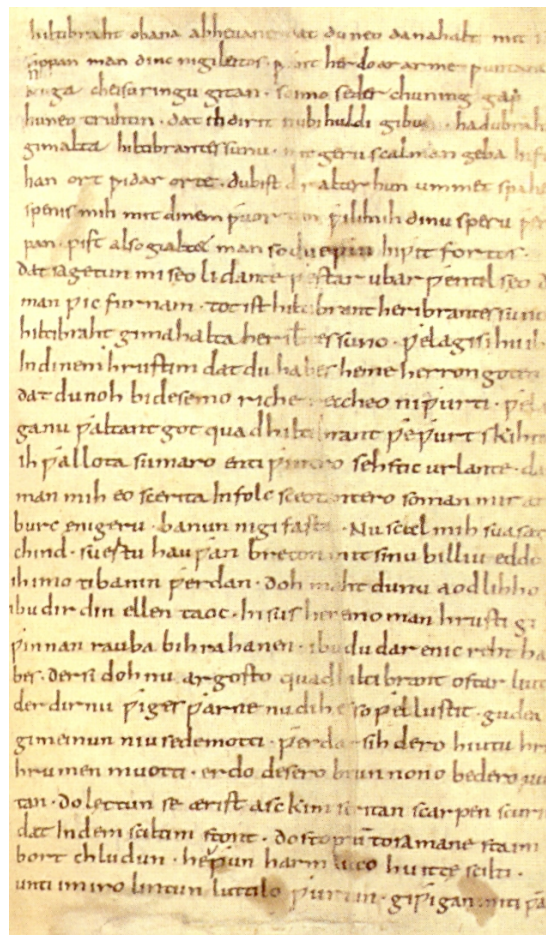 hiltibraht obana abheuane dat du neo danahalt mit
sippan man dinc nigileitos · ƿant her do ar arme ƿuntana
bauga cheisuringu gitan · so imo seder chuning gap
huneo truhtin · dat ih dir it nu bihuldi gibu · hadubrah
gimalta hiltibrantes sunu · mit geru scal man geba infa
han ort ƿidar orte · du bist dir alter hun ummet spahe
spenis mih mit dinem ƿuortun ƿili mih dinu speru ƿer
pan · pist also gialtet man so du eƿin Inƿit fortos ·
dat sagetun mi seo lidante ƿestar ubar ƿentil seo d
man ƿic furnam · tot ist hiltibrant heribrantes suno
hiltibraht gimahalta heribtes suno · ƿela gisihu ih
In dinem hrustim dat du habes heme herron goten
dat du noh bi desemo riche reccheo ni ƿurti · ƿela
ga nu ƿaltant got quad hiltibrant ƿeƿurt skihit
ih ƿallota sumaro enti ƿintro sehstic urlante · da
man mih eo scerita In folc sceotantero so man mir at
burc enigeru · banun ni gifasta · Nu scal mih suasat
chind · suertu hauƿan breton mit sinu billiu eddo
ih imo ti banin ƿerdan · doh maht du nu aodlihho
ibu dir din ellen taoc · In sus heremo man hrusti gi
ƿinnan rauba bihrahanen · ibu du dar enic reht ha
bes · der si doh nu argosto quad hiltibrant ostar liuto
der dir nu ƿiges ƿarne nu dih es so ƿel lustit · gudea
gimeinun niuse de motti · ƿerdar sih dero hiutu hr
hrumen muotti · erdo desero brunnono bedero ƿu
tan · do lettun se ærist asckim scritan scarpen scuri
dat In dem sciltim stont · do stoptu to samane staim
bort chludun · heƿun harmlicco huitte scilti ·
unti im iro lintun luttilo ƿurtun · giƿigan miti ƿa